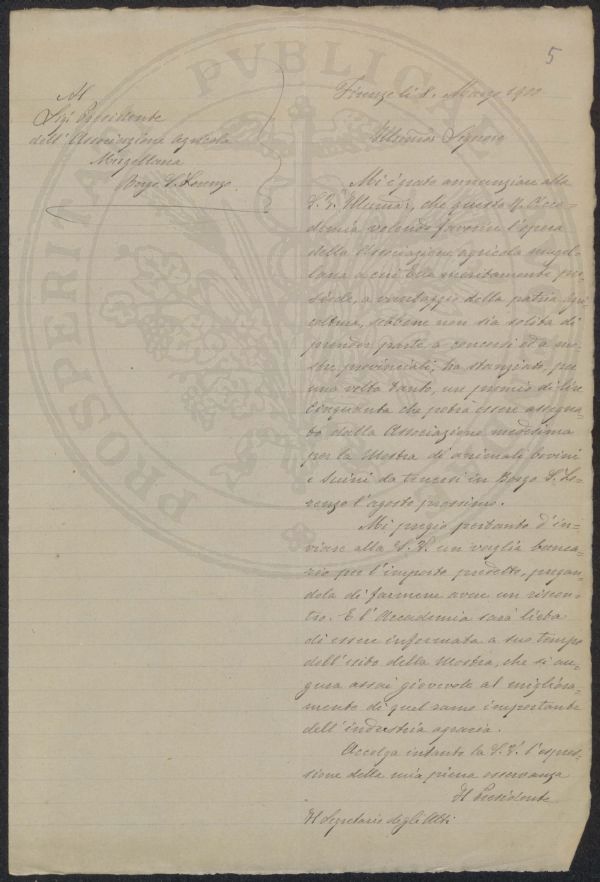 5
Al
Sig. Presidente
dell'Associazione Agricola
Mugellana
Borgo S. Lorenzo.
Firenze li 8. Marzo 1900
Illumo Signore
Mi è grato annunziare alla
S. V. Illuma, che questa R. Acca-
demia volendo favorire l'opera
della Associazione agricola mugel-
lana a cui Ella meritamente pre-
siede, a vantaggio della patria agri
coltura, sebbene non sia solita di
prender parte a concorsi od a mo-
stre provinciali, ha stanziato, per
una volta tanto, un premio di lire
Cinquanta che potrà essere assegna-
to dalla Associazione medesima
per la Mostra di animali bovini
e suini da tenersi in Borgo S. Lo-
renzo l'agosto prossimo.
Mi pregio pertanto d'in-
viare alla S. V. un vaglia banca-
rio per l'importo predetto, pregan-
dola di farmene aver un riscon-
tro. E l'Accademia sarà lieta
di essere informata a suo tempo
dell'esito della Mostra, che si au-
gura assai giovevole al migliora-
mento di quel ramo importante
dell'industria agraria.
Accolga intanto la S. V. l'espres-
sione della mia piena osservanza
Il Presidente
Il Segretario degli Atti
PROSPERITATI PVBLICAE